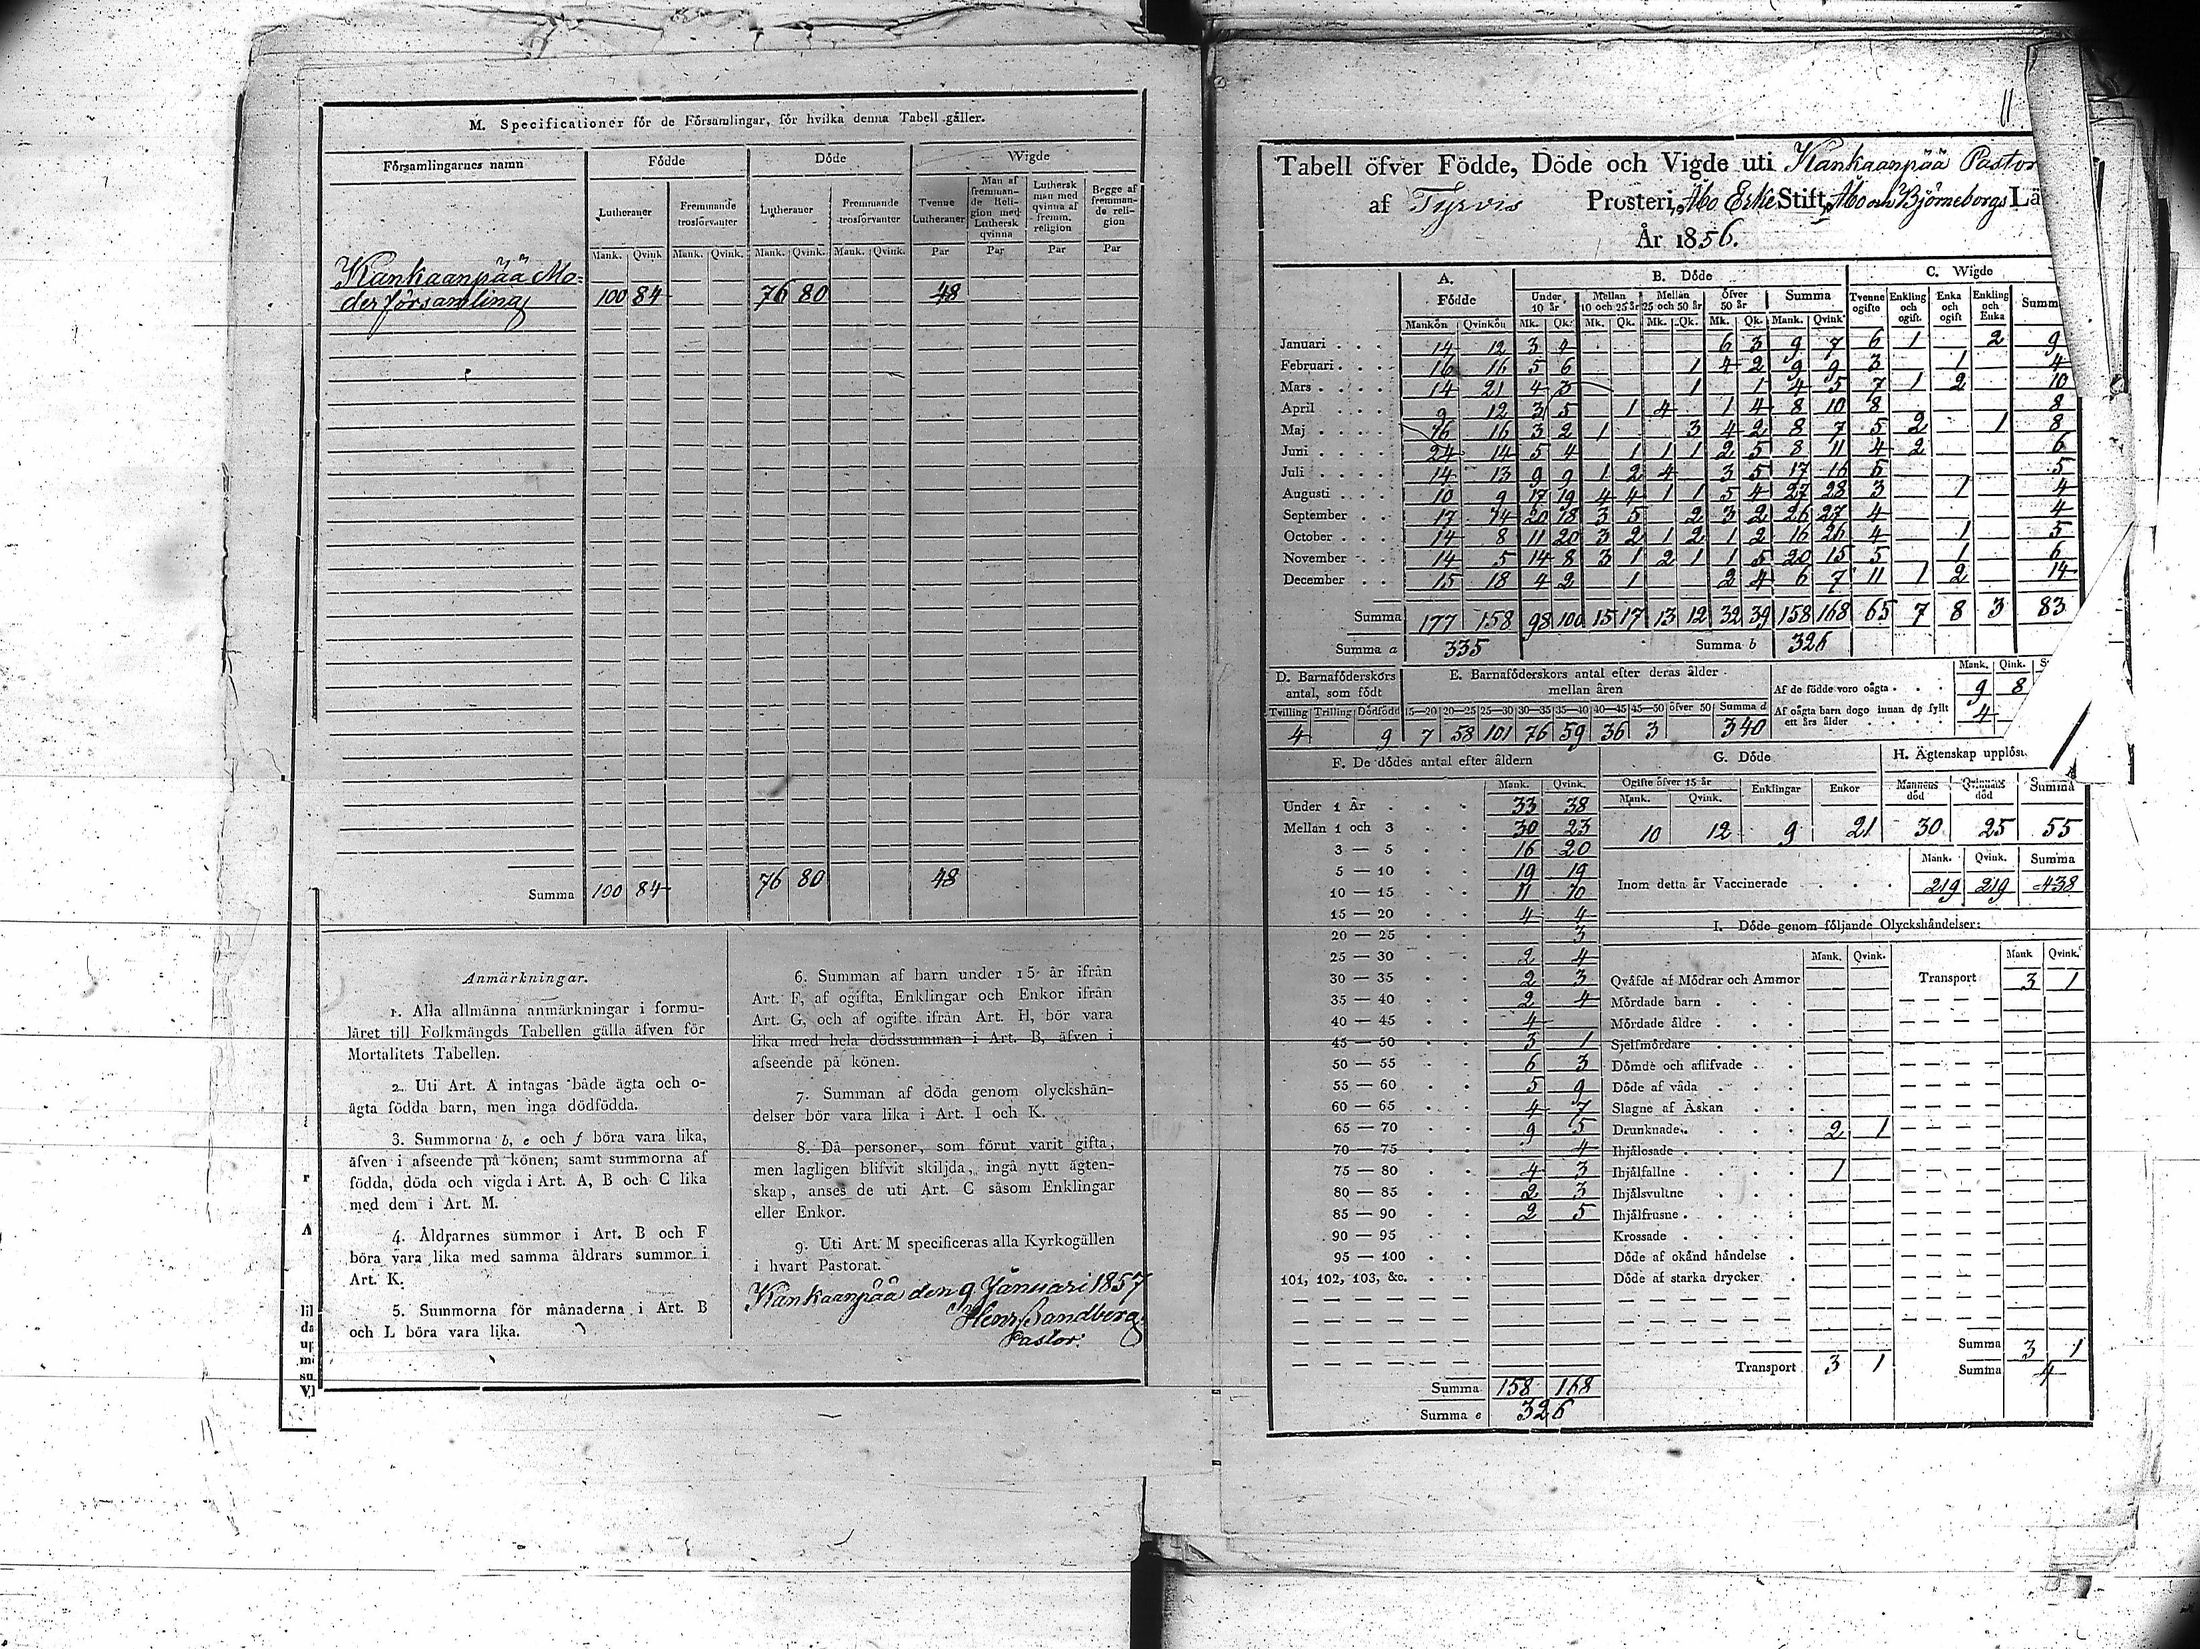 M. Specificationer för de Församlingar, för hvilka denna Tabell gäller.
Församlingarnes namn | Födde | Döde | Wigde
Lutheraner | Fremmande trosförvanter | Lutheraner | Fremmande trosförvanter | Tvenne Lutheraner | Man af fremmande Religion med Luthersk qvinna | Luthersk man med qvinna af fremm. religion | Begge af fremmande religion
Mank. | Qvink | Mank. | Qvink. | Mank. | Qvink. | Mank. | Qvink. | Par | Par | Par | Par
Kankaanpää Mo-
derförsamling | 100 | 84 | 76 | 80 | 48
Summa | 100 | 84 | 76 | 80 | 48
Anmärkningar.
1. Alla allmänna anmärkningar i formu-
läret till Folkmängds Tabellen gälla äfven för
Mortalitets Tabellen.
2. Uti Art. A intagas både ägta och o-
ägta födda barn, men inga dödfödda.
3. Summorna b, e och f böra vara lika,
äfven i afseende på könen; samt summorna af
födda, döda och vigda i Art. A, B och C lika
med dem i Art. M.
4. Åldrarnes summor i Art. B och F
böra vara lika med samma åldrars summor i
Art. K.
5. Summorna för månaderna i Art. B
och L böra vara lika.
6. Summan af barn under 15 år ifrån
Art. F, af ogifta, Enklingar och Enkor ifrån
Art. G, och af ogifte ifrån Art. H, bör vara
lika med hela dödssumman i Art. B, äfven i
afseende på könen.
7. Summan af döda genom olyckshän-
delser bör vara lika i Art. I och K.
8. Då personer, som förut varit gifta,
men lagligen blifvit skiljda, ingå nytt ägten-
skap, anses de uti Art. C såsom Enklingar
eller Enkor.
9. Uti Art. M specificeras alla Kyrkogällen
i hvart Pastorat.
Kankaanpää den 9 Januari 1857
Henr Sandberg
Pastor.
Tabell öfver Födde, Döde och Vigde uti Kankaanpää Pastor
af Tyrvis Prosteri, Åbo Erke Stift, Åbo och Björneborgs Lä
År 1856.
A. Födde | B. Döde | C. Wigde
Under 10 år | Mellan 10 och 25 år | Mellan 25 och 50 år | Öfver 50 år | Summa | Tvenne ogifte | Enkling och ogift. | Enka och ogift | Enkling och Enka | Summ
Mankön | Qvinkön | Mk. | Qk. | Mk. | Qk. | Mk. | Qk. | Mk. | Qk. | Mank. | Qvink
Januari | 14 | 12 | 3 | 4 | 6 | 3 | 9 | 7 | 6 | 1 | 2 | 9
Februari | 16 | 16 | 5 | 6 | 1 | 4 | 2 | 9 | 9 | 3 | 1 | 4
Mars | 14 | 21 | 4 | 3 | 1 | 1 | 4 | 5 | 7 | 1 | 2 | 10
April | 9 | 12 | 3 | 5 | 1 | 4 | 1 | 4 | 8 | 10 | 8 | 8
Maj | 16 | 16 | 3 | 2 | 1 | 3 | 4 | 2 | 8 | 7 | 5 | 2 | 1 | 8
Juni | 24 | 14 | 5 | 4 | 1 | 1 | 1 | 2 | 5 | 8 | 11 | 4 | 2 | 6
Juli | 14 | 13 | 9 | 9 | 1 | 2 | 4 | 3 | 5 | 17 | 16 | 5 | 5
Augusti | 10 | 9 | 17 | 19 | 4 | 4 | 1 | 1 | 5 | 4 | 27 | 28 | 3 | 1 | 4
September | 17 | 14 | 20 | 18 | 3 | 5 | 2 | 3 | 2 | 26 | 27 | 4 | 4
October | 14 | 8 | 11 | 20 | 3 | 2 | 1 | 2 | 1 | 2 | 16 | 26 | 4 | 1 | 5
November | 14 | 5 | 14 | 8 | 3 | 1 | 2 | 1 | 1 | 5 | 20 | 15 | 5 | 1 | 6
December | 15 | 18 | 4 | 2 | 1 | 2 | 4 | 6 | 7 | 11 | 1 | 2 | 14
Summa | 177 | 158 | 98 | 100 | 15 | 17 | 13 | 12 | 32 | 39 | 158 | 168 | 65 | 7 | 8 | 3 | 83
Summa a | 335 | Summa b | 326
D. Barnaföderskors antal, som födt | E. Barnaföderskors antal efter deras ålder mellan åren | Mank. | Qink.
Tvilling | Trilling | Dödfödd | 15—20 | 20—25 | 25—30 | 30—35 | 35—40 | 40—45 | 45—50 | öfver 50 | Summa d
4 | 9 | 7 | 58 | 101 | 76 | 59 | 36 | 3 | 340
Af de födde voro oägta | 9 | 8
Af oägta barn dogo innan de fyllt ett års ålder | 4
F. De dödes antal efter åldern
Mank. | Qvink.
Under 1 År | 33 | 38
Mellan 1 och 3 | 30 | 23
3 — 5 | 16 | 20
5 — 10 | 19 | 19
10 — 15 | 11 | 10
15 — 20 | 4 | 4
20 — 25 | 3
25 — 30 | 2 | 4
30 — 35 | 2 | 3
35 — 40 | 2 | 4
40 — 45 | 4
45 — 50 | 3 | 1
50 — 55 | 6 | 3
55 — 60 | 5 | 9
60 — 65 | 4 | 7
65 — 70 | 9 | 5
70 — 75 | 4
75 — 80 | 4 | 3
80 — 85 | 2 | 3
85 — 90 | 2 | 5
90 — 95
95 — 100
101, 102, 103, &c.
Summa | 158 | 168
Summa e | 326
G. Döde
Ogifte öfver 15 år | Enklingar | Enkor
Mank. | Qvink.
10 | 12 | 9 | 21
H. Ägtenskap upplöst
Mannens död | Qvinnans död | Summa
30 | 25 | 55
Mank. | Qvink. | Summa
Inom detta år Vaccinerade | 219 | 219 | 438
I. Döde genom följande Olyckshändelser:
Mank. | Qvink. | Mank | Qvink.
Qväfde af Mödrar och Ammor | Transport | 3 | 1
Mördade barn
Mördade äldre
Sjelfmördare
Dömde och aflifvade
Döde af våda
Slagne af Åskan
Drunknade | 2 | 1
Ihjälosade
Ihjälfallne | 1
Ihjälsvultne
Ihjälfrusne
Krossade
Döde af okänd händelse
Döde af starka drycker
Summa | 3 | 1
Transport | 3 | 1 | Summa | 4